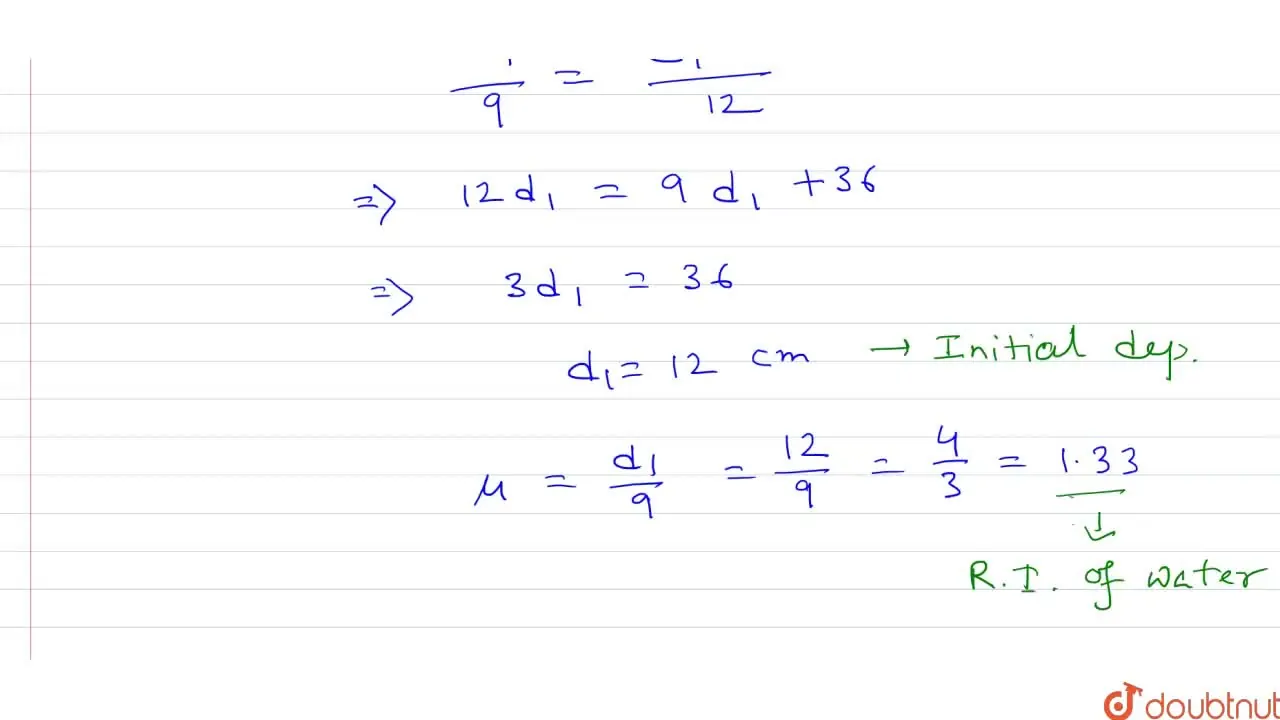 — / 9 = — / 12
=> 12 d₁ = 9 d₁ + 36
=> 3 d₁ = 36
d₁ = 12 cm → Initial dep.
μ = d₁/9 = 12/9 = 4/3 = 1.33
↓
R.I. of water
doubtnut